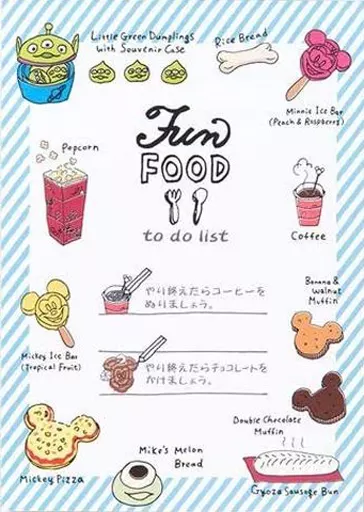 Little Green Dumplings
with Souvenir Case
Rice Bread
Minnie Ice Bar
(Peach & Raspberry)
Fun
FOOD
to do list
Popcorn
Coffee
やり終えたらコーヒーを
ぬりましょう。
Banana &
Walnut
Muffin
Mickey Ice Bar
(Tropical Fruit)
やり終えたらチョコレートを
かけましょう。
Double Chocolate
Muffin
Mickey Pizza
Mike's Melon
Bread
Gyoza Sausage Bun